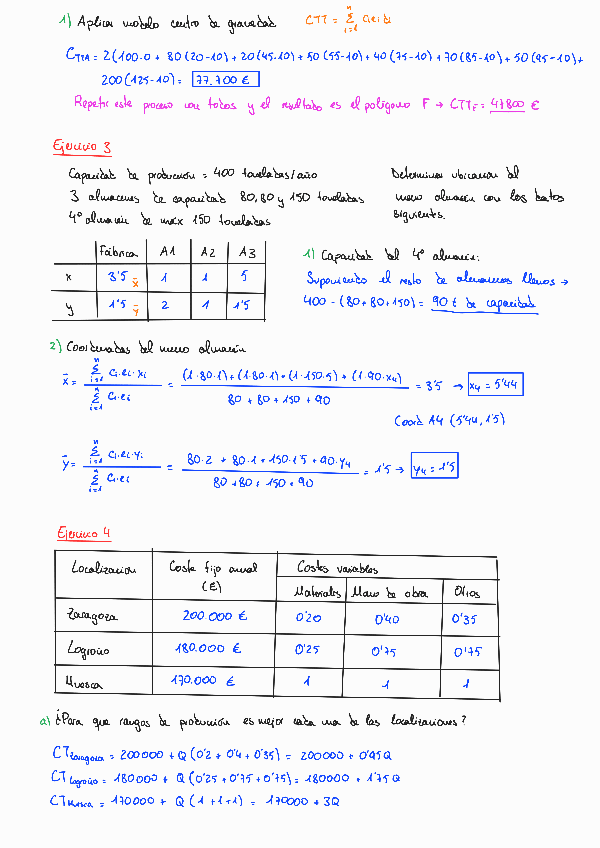 1) Aplicar modelo centro de gravedad CTT = n Σ i=1 ciei di
CTTA = 2(100·0 + 80(20-10) + 20(45-10) + 50(55-10) + 40(75-10) + 70(85-10) + 50(95-10) +
200(125-10) = 77.700 €
Repetir este proceso con todos y el resultado es el polígono F → CTTF = 47800 €
Ejercicio 3
Capacidad de producción = 400 toneladas/año
3 almacenes de capacidad 80, 80 y 150 toneladas
4º almacén de máx 150 toneladas
Determinar ubicación del
nuevo almacén con los datos
siguientes.
Fábrica A1 A2 A3
x 3'5 x̄ 1 1 5
y 1'5 ȳ 2 1 1'5
1) Capacidad del 4º almacén:
Suponiendo el resto de almacenes llenos →
400 - (80 + 80 + 150) = 90 t de capacidad
2) Coordenadas del nuevo almacén
x̄ = n Σ i=1 ci·ei·xi / n Σ i=1 ci·ei = (1·80·1) + (1·80·1) + (1·150·5) + (1·90·x4) / 80 + 80 + 150 + 90 = 3'5 → x4 = 5'44
Coord A4 (5'44, 1'5)
ȳ = n Σ i=1 ci·ei·yi / n Σ i=1 ci·ei = 80·2 + 80·1 + 150·1'5 + 90·y4 / 80 + 80 + 150 + 90 = 1'5 → y4 = 1'5
Ejercicio 4
Localización Coste fijo anual (€) Costes variables
Materiales Mano de obra Otros
Zaragoza 200.000 € 0'20 0'40 0'35
Logroño 180.000 € 0'25 0'75 0'75
Huesca 170.000 € 1 1 1
a) ¿Para que rangos de producción es mejor cada una de las localizaciones?
CTzaragoza = 200000 + Q (0'2 + 0'4 + 0'35) = 200000 + 0'95Q
CTlogroño = 180000 + Q (0'25 + 0'75 + 0'75) = 180000 + 1'75 Q
CTHuesca = 170000 + Q (1 + 1 + 1) = 170000 + 3Q